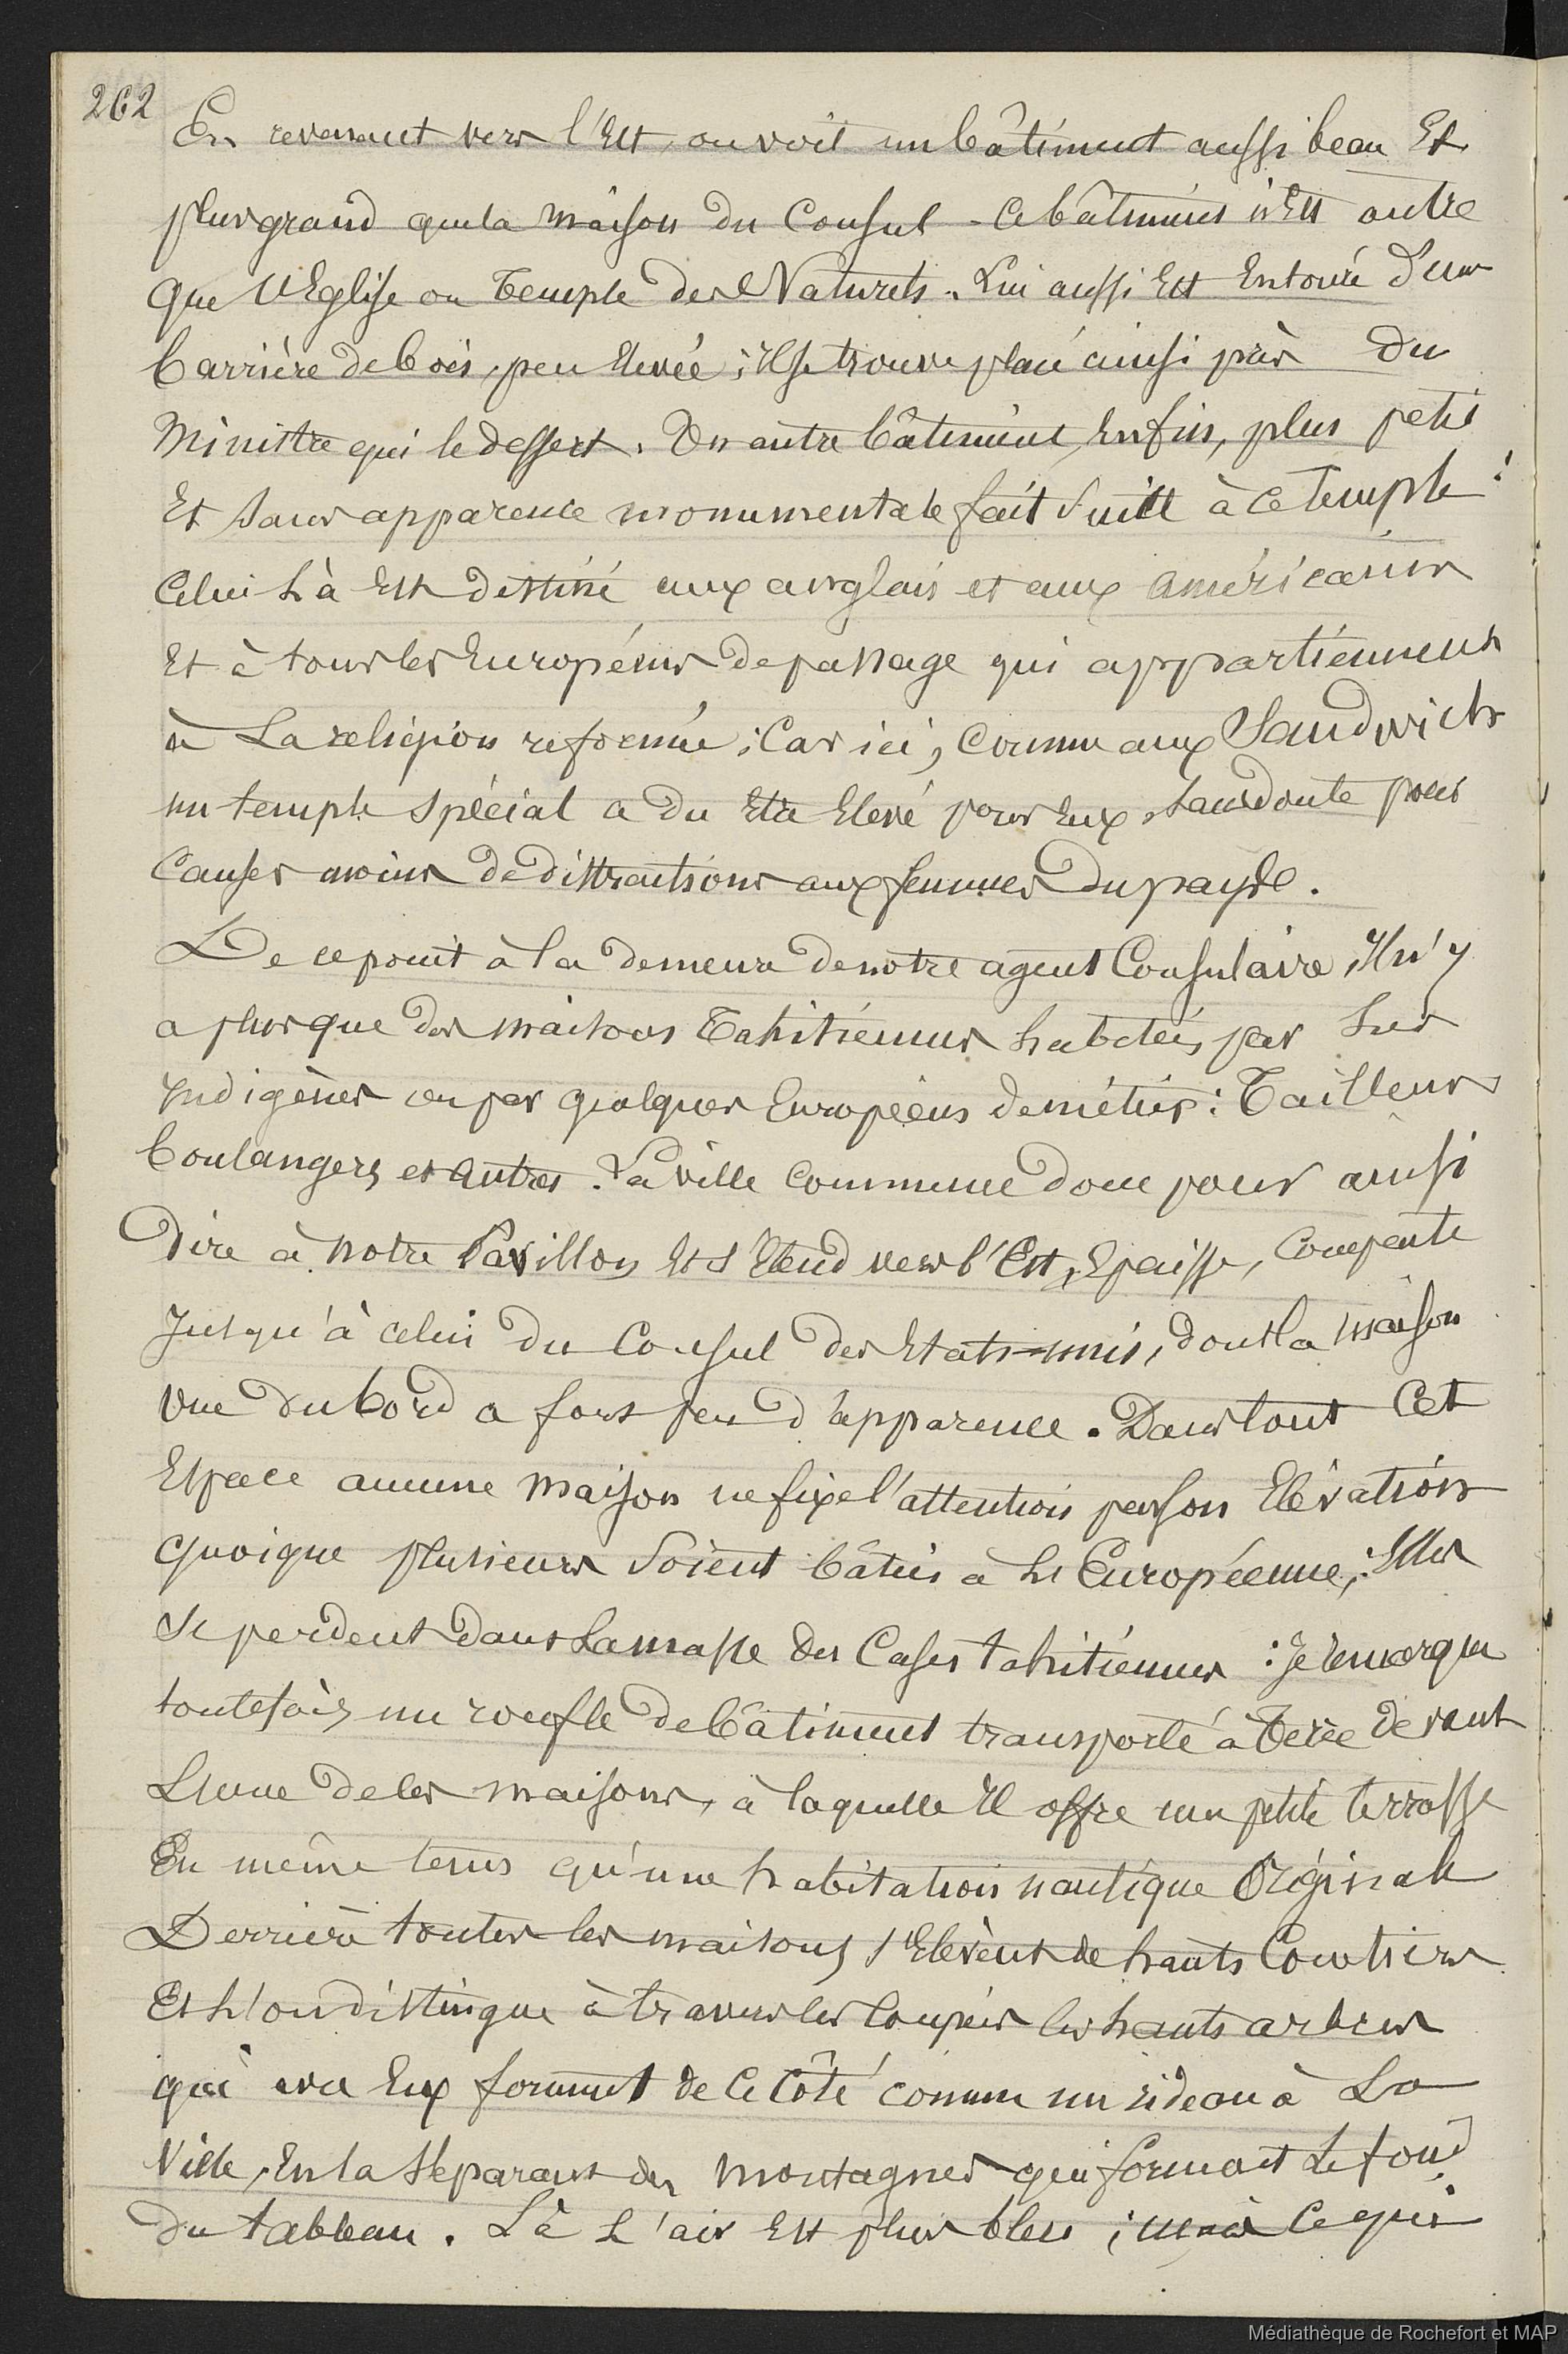 262
En revenant vers l'Est, on voit un bâtiment aussi beau Et
plus grand que la maison du Consul - Ce bâtiment n'Est autre
que l'Eglise ou Temple des Naturels. Lui aussi Est Entouré d'une
barrière de bois, peu Elevée ; Il se trouve placé ainsi près du
Ministre qui le dessert. Un autre bâtiment, Enfin, plus petit
Et sans apparence monumentale fait suite à ce Temple :
Celui là Est destiné aux anglais et aux américains
Et à tous les Européens de passage qui appartiennent
à La religion reformée ; Car ici, comme aux Sandwich
un temple spécial a du Etre Elevé pour Eux, sans doute pour
Causer moins de distractions aux femmes du pays.
De ce point à la demeure de notre agent Consulaire, Il n'y
a plus que des maisons Tahitiennes habitées par Les
Indigènes ou par quelques Européens de métier : Tailleurs
boulangers et autres. La ville commence donc pour ainsi
dire à notre Pavillon Et s'Etend vers l'Est, Epaisse, Compacte
Jusqu'à celui du Consul des Etats-unis, dont la maison
vue du bord a fort peu d'apparence. Dans tout Cet
Espace aucune maison ne fixe l'attention par son Elévation
quoique plusieurs soient bâties à L'Européenne ; Elles
Se perdent dans La masse des Cases tahitiennes : Je remarque
toutefois un roufle de bâtiment transporté à Terre devant
L'une de ces maisons, à laquelle Il offre une petite terrasse
En même tems qu'une habitation nautique Originale
Derrière toutes les maisons s'Elèvent de hauts Cocotiers
Et L'on distingue à travers les Coupées les hauts arbres
qui avec Eux forment de Ce Côté comme un rideau à La
Ville, En la séparant des montagnes qui forment Le fond
du tableau. Là L'air Est plus bleu ; mais Ce qui
Médiathèque de Rochefort et MAP